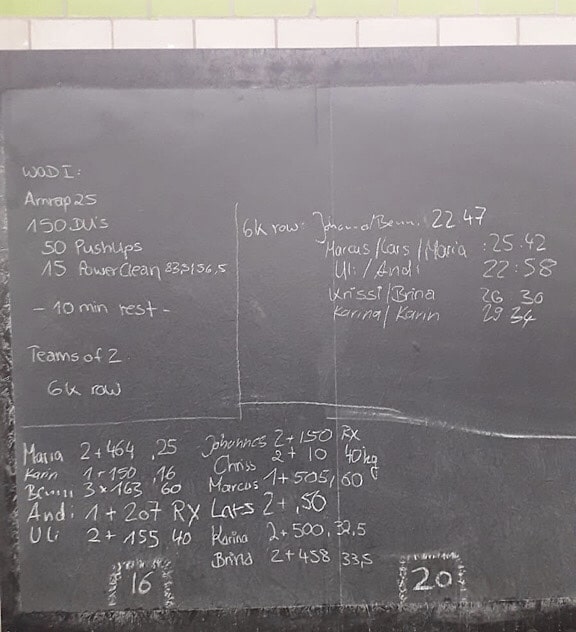 WOD I:
Amrap 25
150 DU's
50 PushUps
15 PowerClean 83,5/56,5
- 10 min rest -
Teams of 2
6k row
6k row: Johanna/Benni 22:47
Marcus/Lars/Maria : 25:42
Uli / Andi 22:58
Krissi/Brina 26 30
Karina/Karin 29 34
Maria 2+464 ,25
Karin 1+150 ,16
Benni 3+163 60
Andi 1+207 RX
Uli 2+155 40
Johannes 2+150 RX
Chriss 2+10 40kg
Marcus 1+505, 60
Lars 2+ ,50
Karina 2+500, 32,5
Brina 2+458 33,5
16
20